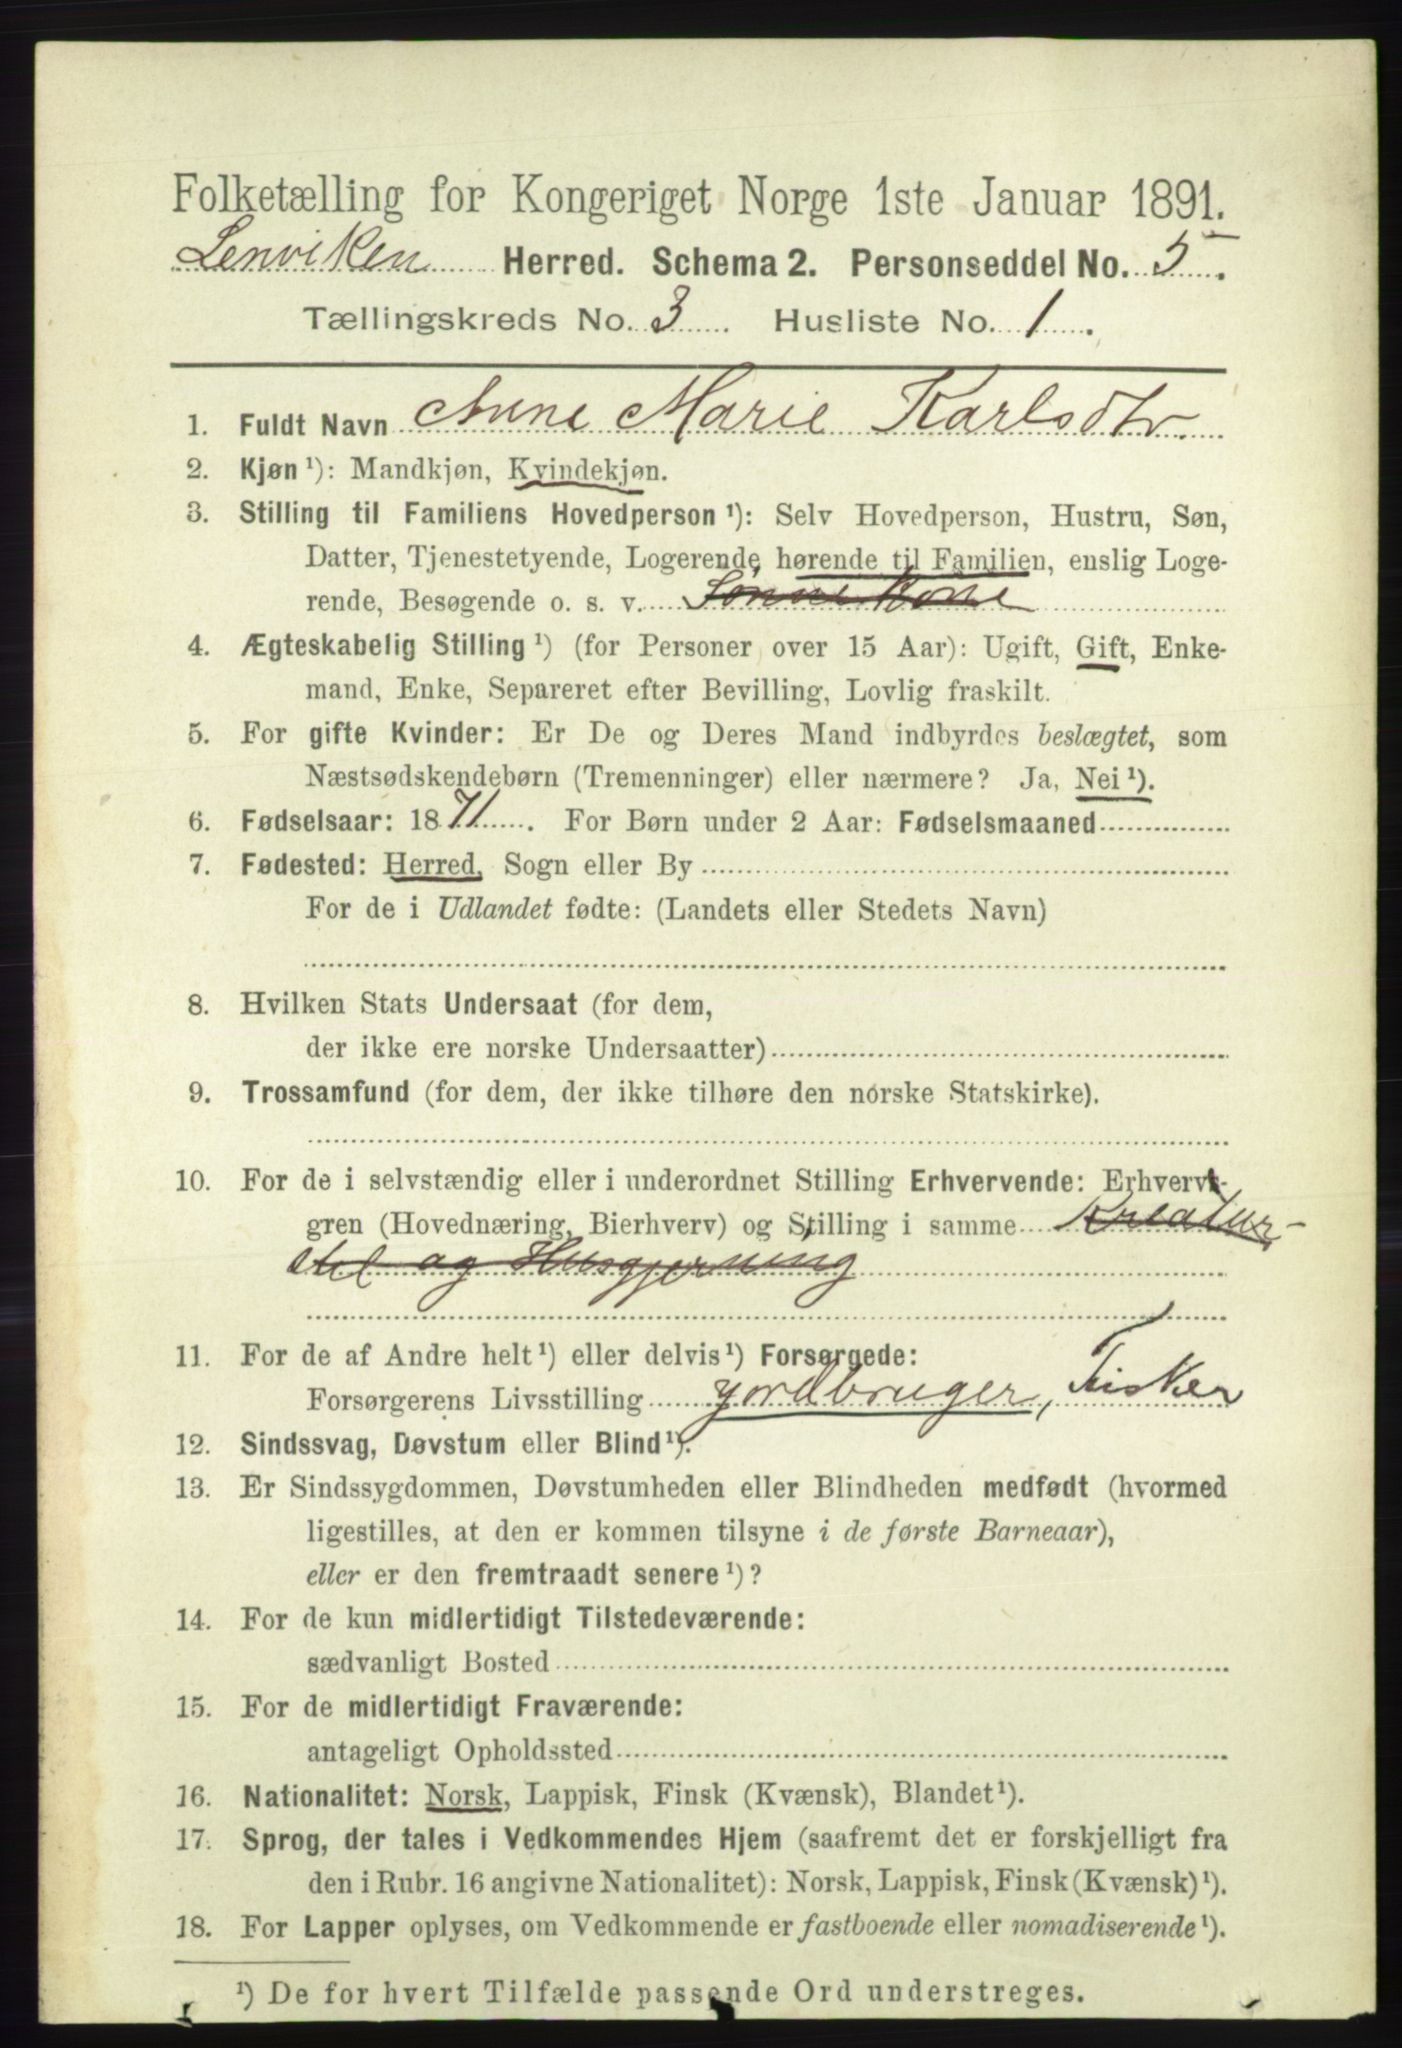 Folketælling for Kongeriget Norge 1ste Januar 1891.
Lenviken Herred. Schema 2. Personseddel No. 5.
Tællingskreds No. 3. Husliste No. 1.
1. Fuldt Navn Anne Marie Karlsdtr.
2. Kjøn ¹): Mandkjøn, Kvindekjøn.
3. Stilling til Familiens Hovedperson ¹): Selv Hovedperson, Hustru, Søn,
Datter, Tjenestetyende, Logerende hørende til Familien, enslig Loge-
rende, Besøgende o. s. v. Sønne Kone
4. Ægteskabelig Stilling ¹) (for Personer over 15 Aar): Ugift, Gift, Enke-
mand, Enke, Separeret efter Bevilling, Lovlig fraskilt.
5. For gifte Kvinder: Er De og Deres Mand indbyrdes beslægtet, som
Næstsødskendebørn (Tremenninger) eller nærmere? Ja, Nei ¹).
6. Fødselsaar: 1871. For Børn under 2 Aar: Fødselsmaaned
7. Fødested: Herred, Sogn eller By
For de i Udlandet fødte: (Landets eller Stedets Navn)
8. Hvilken Stats Undersaat (for dem,
der ikke ere norske Undersaatter)
9. Trossamfund (for dem, der ikke tilhøre den norske Statskirke).
10. For de i selvstændig eller i underordnet Stilling Erhvervende: Erhvervs-
gren (Hovednæring, Bierhverv) og Stilling i samme Kreatur-
stel og Husgjerning
11. For de af Andre helt ¹) eller delvis ¹) Forsørgede:
Forsørgerens Livsstilling yordbruger, Fisker
12. Sindssvag, Døvstum eller Blind ¹).
13. Er Sindssygdommen, Døvstumheden eller Blindheden medfødt (hvormed
ligestilles, at den er kommen tilsyne i de første Barneaar),
eller er den fremtraadt senere ¹)?
14. For de kun midlertidigt Tilstedeværende:
sædvanligt Bosted
15. For de midlertidigt Fraværende:
antageligt Opholdssted
16. Nationalitet: Norsk, Lappisk, Finsk (Kvænsk), Blandet ¹).
17. Sprog, der tales i Vedkommendes Hjem (saafremt det er forskjelligt fra
den i Rubr. 16 angivne Nationalitet): Norsk, Lappisk, Finsk (Kvænsk) ¹).
18. For Lapper oplyses, om Vedkommende er fastboende eller nomadiserende ¹).
¹) De for hvert Tilfælde passende Ord understreges.